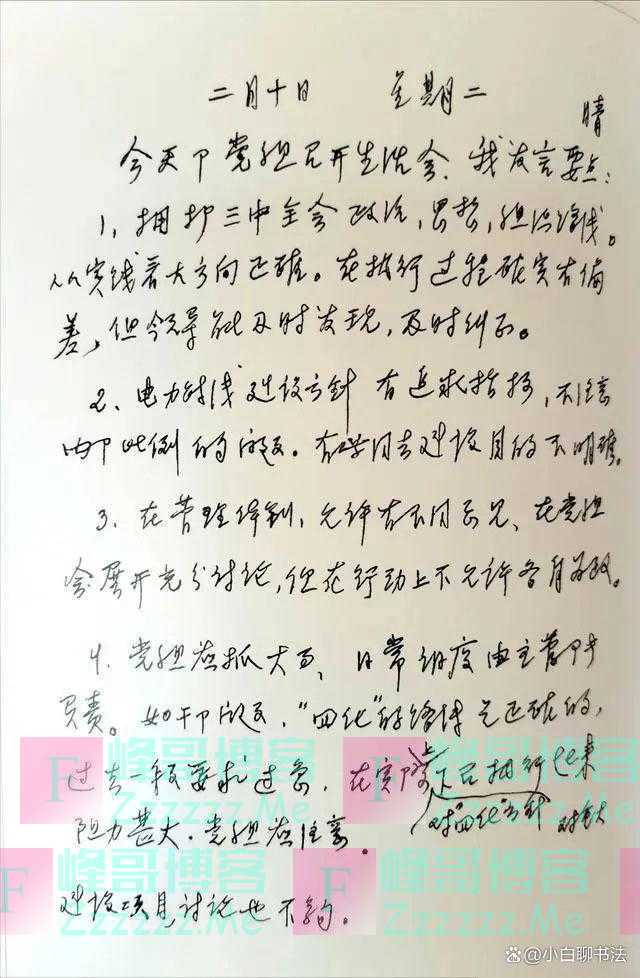 二月十日 星期二
晴
今天下党组召开生活会、我发言要点:
1、拥护三中全会政治,思想,组织路线。
从实践看大方向正确。在执行过程确实有偏
差,但今 能及时发现,及时纠正。
2、电力 建设方针 有追求指标,不注意
内部比例的 。 建设目的不明确。
3、在管理体制,允许有不同意见、在党组
会展开充分讨论,但在行动上不允许各自为政。
4、党组应抓大事、日常 度由主管
负责。如干部 ,“四化”的 是正确的,
过去一般要求过急,在实际上 执行 来
对“四化”方针
阻力甚大.党组应注意。
建设项目讨论也不够。
峰哥博客
Zzzzzz.Me
峰哥博客
Zzzzzz.Me
@小白聊书法